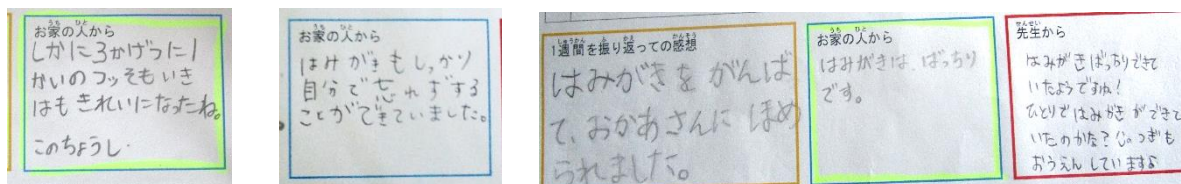 お家の人から
しかに3かげつに1
かいのフッそもいき
はもきれいになったね。
このちょうし.
お家の人から
はみがきもしっかり
自分で忘れずする
ことができていました。
1週間を振り返っての感想
はみがきをがんば
て、おかあさんにほめ
られました。
お家の人から
はみがきは、ばっちり
です。
先生から
はみがきばっちりできて
いたようですね!
ひとりではみがきができて
いたのかな? つぎも
おうえんしています